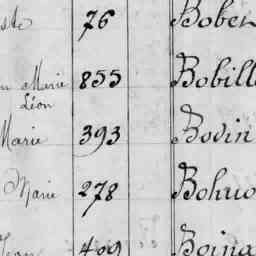 76 Bober
Marie 855 Bobill
Léon
Marie 393 Bodin
Marie 278 Bohuo
Jean 409 Boina